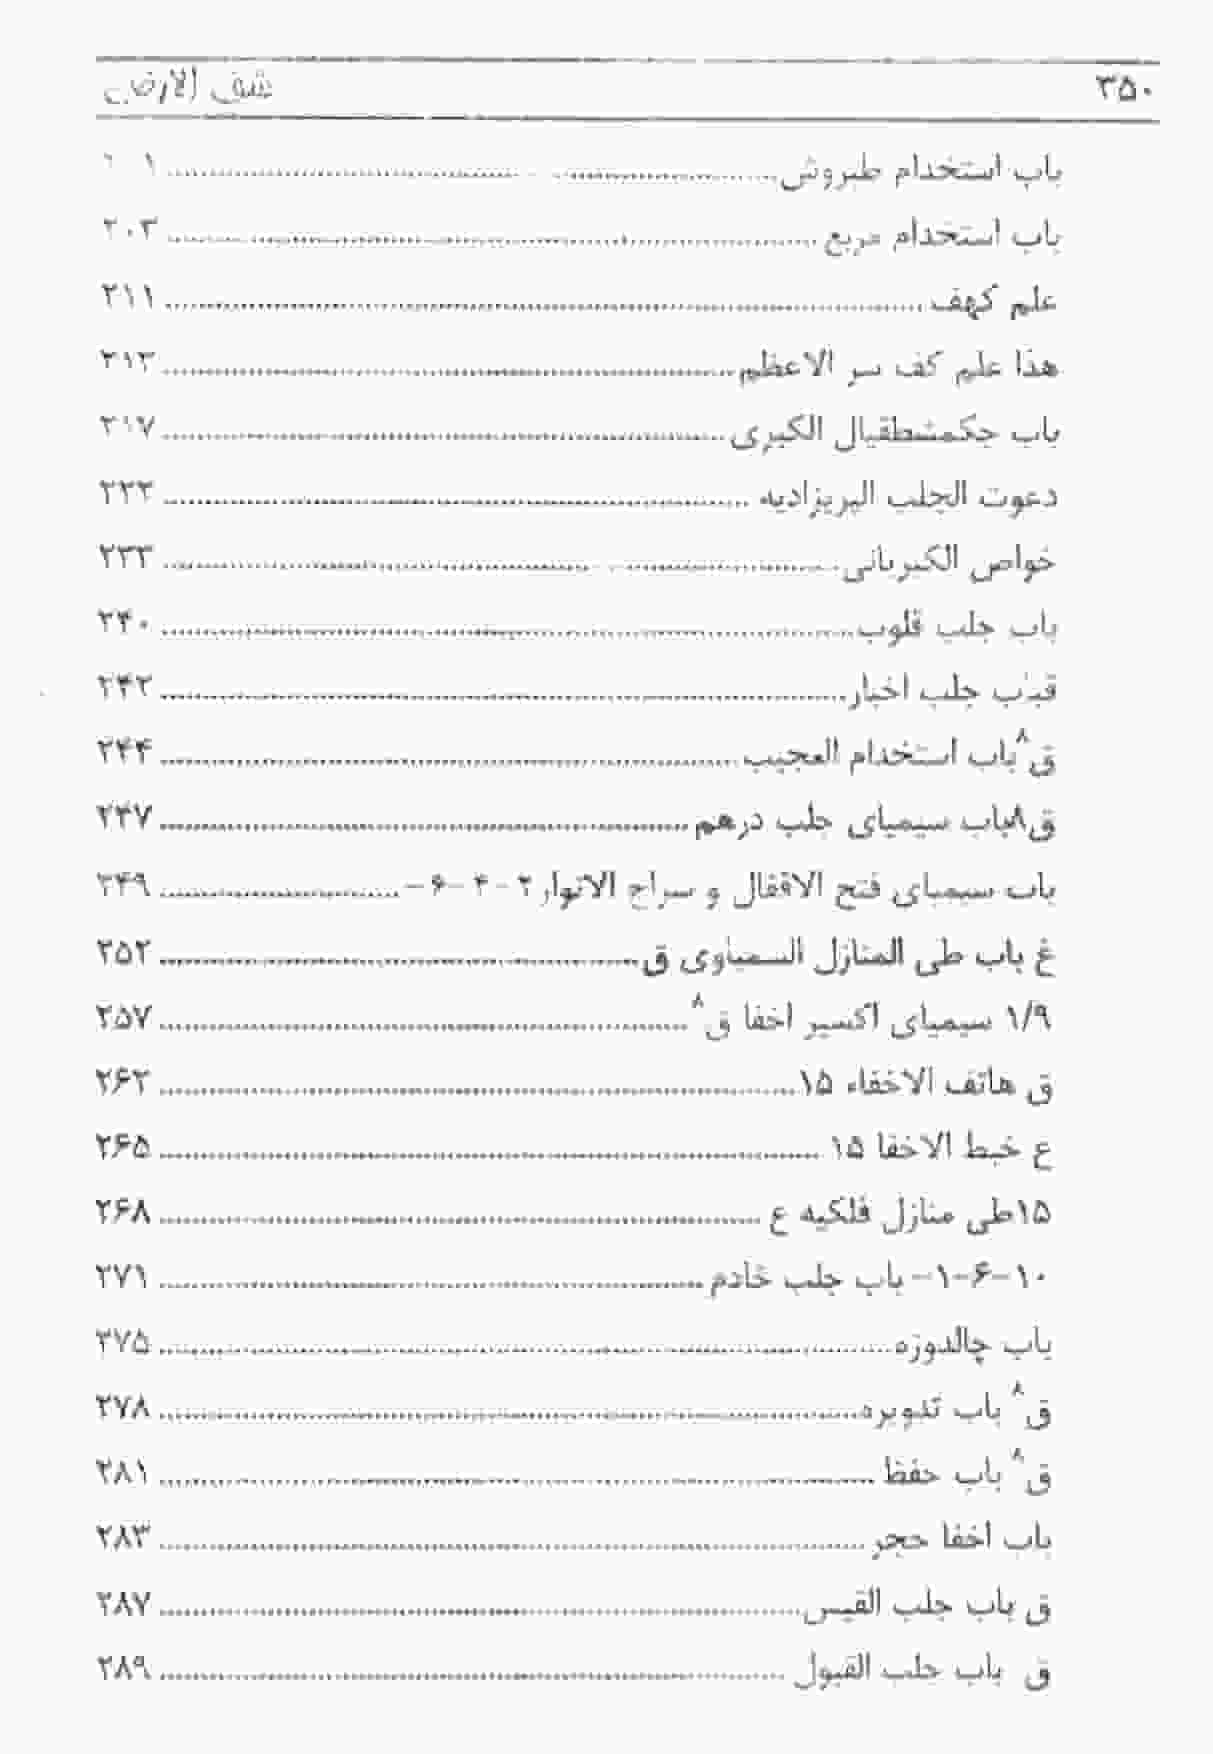 ۳۵۰ شق الارض
باب استخدام طبروش
باب استخدام مربع ۲۰۳
علم کهف ۲۱۱
هذا علم کف سر الاعظم ۲۱۳
باب جکمشطقیال الکبری ۲۱۷
دعوت الجلب البریزادیه
خواص الکبریائی
باب جلب قلوب ۲۴۰
جلب اخبار ۲۴۲
ق۸ باب استخدام العجیب ۲۴۴
ق۸باب سیمیای جلب درهم ۲۴۷
باب سیمیای فتح الاقفال و سراج الانوار ۲-۴-۶- ۲۴۹
غ باب طی المنازل السماوی ق ۲۵۲
۱/۹ سیمیای اکسیر اخفا ق۸ ۲۵۷
ق هاتف الاخفاء ۱۵ ۲۶۲
ع خبط الاخفا ۱۵ ۲۶۵
۱۵طی منازل فلکیه ع ۲۶۸
۱۰-۶-۱- باب جلب خادم ۲۷۱
باب چالدوزه ۲۷۵
ق۸ باب تدویره ۲۷۸
ق۸ باب حفظ ۲۸۱
باب اخفا حجر ۲۸۳
ق باب جلب القیس ۲۸۷
ق باب جلب القبول ۲۸۹